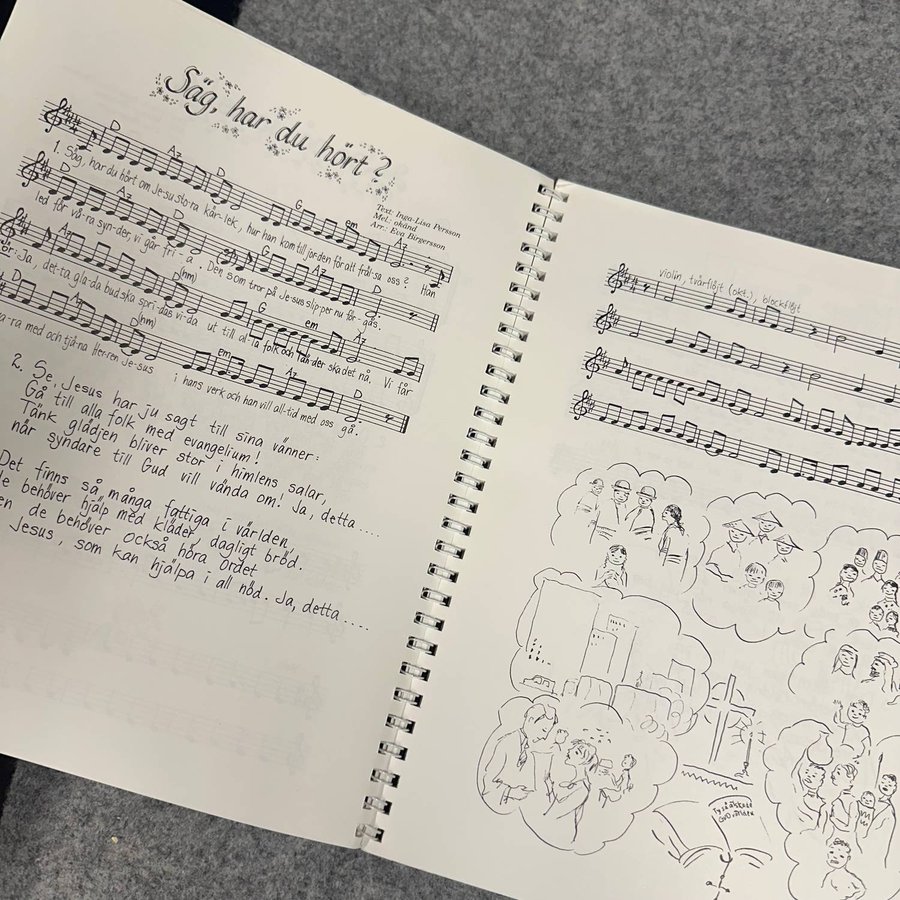 Säg, har du hört?
Text: Inga-Lisa Persson
Mel.: okänd
Arr.: Eva Birgersson
D A7 D G em A7
1. Säg, har du hört om Je-su sto-ra kär-lek, hur han kom till jor-den för att fräl-sa oss? Han
D A7 D G A7 D
led för vå-ra syn-der, vi går fri-a. Den som tror på Je-sus slip-per nu för-gås.
A7 D (hm) G em A7
Ja, det-ta gla-da bud ska spri-das vi-da ut till al-la folk och län-der ska det nå. Vi får
D A7 D (hm) em A7 D
va-ra med och tjä-na Her-ren Je-sus i hans verk och han vill all-tid med oss gå.
2. Se, Jesus har ju sagt till sina vänner:
Gå till alla folk med evangelium!
Tänk glädjen bliver stor i himlens salar,
när syndare till Gud vill vända om! Ja, detta...
Det finns så många fattiga i världen,
de behöver hjälp med kläder, dagligt bröd.
en de behöver också höra Ordet
Jesus, som kan hjälpa i all nöd. Ja, detta....
violin, tvärflöjt (okt.), blockflöjt
Ty så älskade
GUD